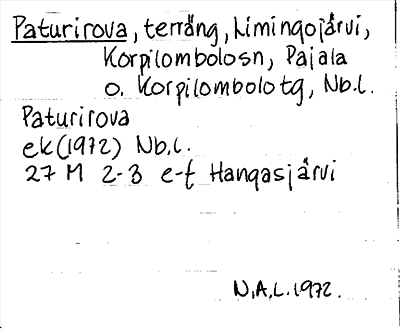 Paturirova, terräng, Limingojärvi,
Korpilombolosn, Pajala
o. Korpilombolo tg, Nb.l.
Paturirova
ek(1972) Nb.l.
27 M 2-3 e-f Hangasjärvi
N.A.L. 1972.